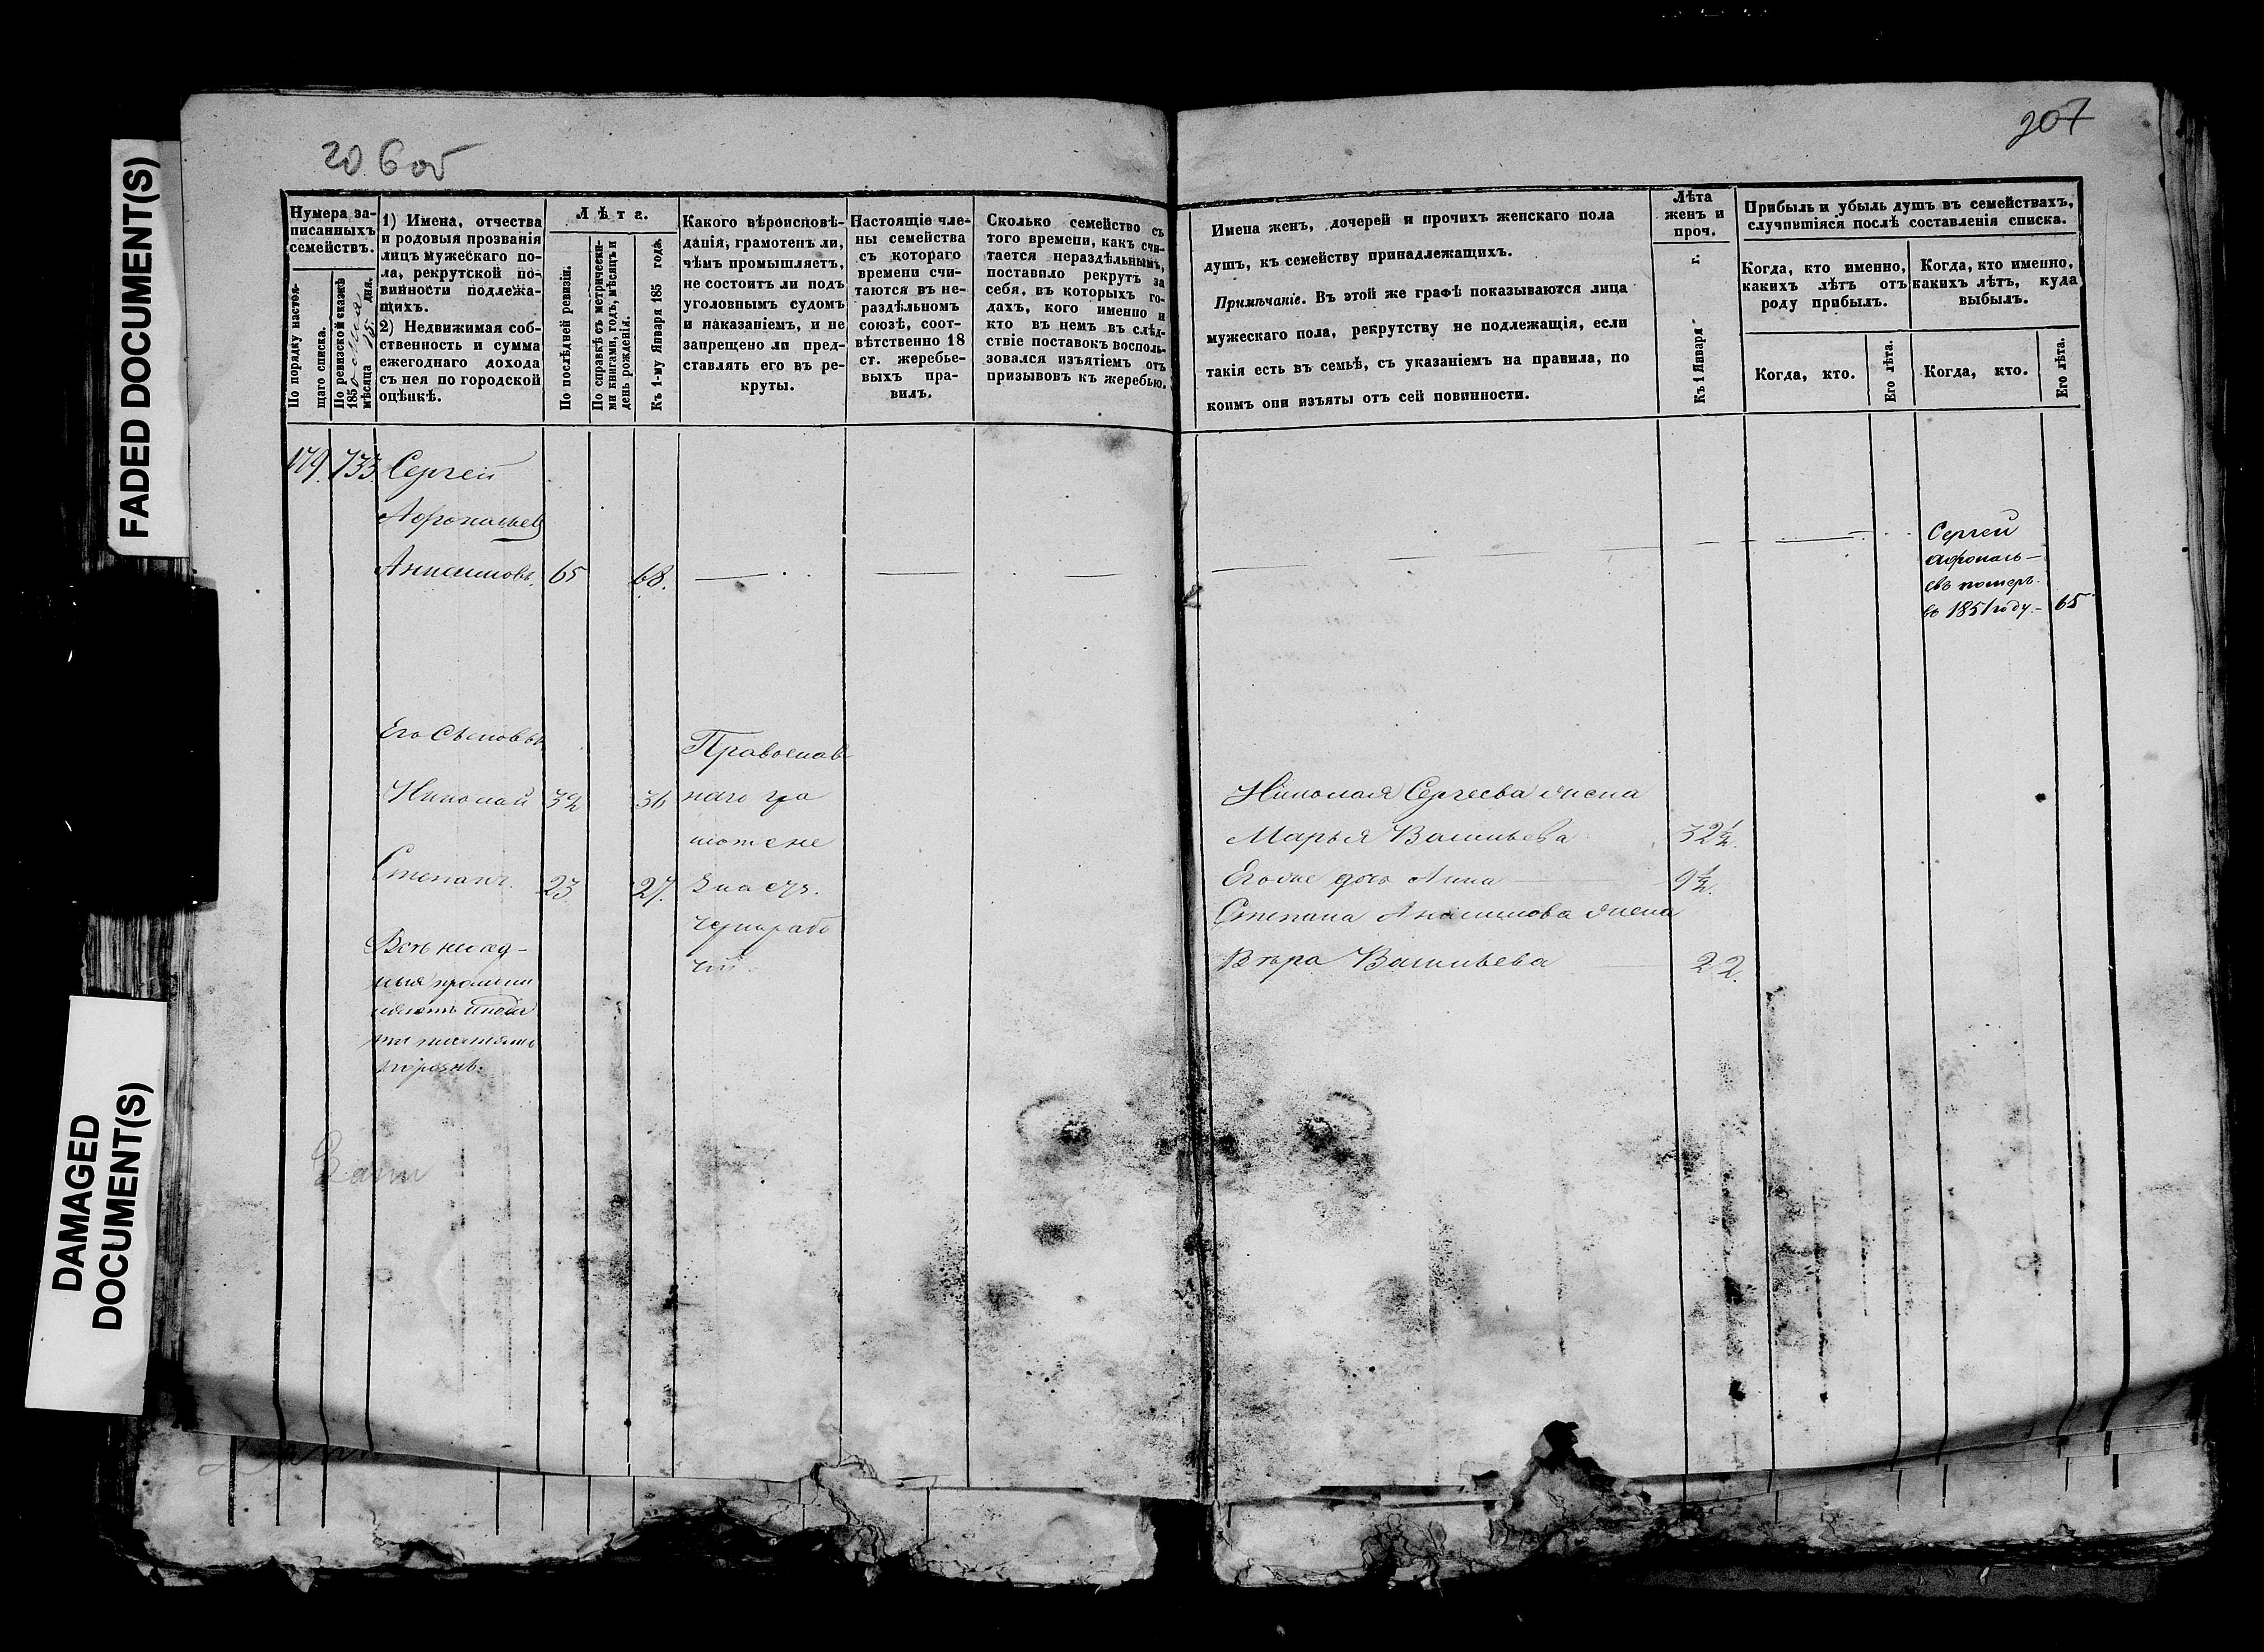 FADED DOCUMENT(S)
DAMAGED
DOCUMENT(S)
206 об
207
Нумера за-
писанныхъ
семействъ.
По порядку настоя-
щаго списка.
По ревизской сказкѣ
185
мѣсяца 15 дня.
1) Имена, отчества
и родовыя прозванія
лицъ мужескаго по-
ла, рекрутской по-
винности подлежа-
щихъ.
2) Недвижимая соб-
ственность и сумма
ежегоднаго дохода
съ нея по городской
оцѣнкѣ.
Лѣта.
По послѣдней ревизіи.
По справкѣ съ метрически-
ми книгами, годъ, мѣсяцъ и
день рожденія.
Къ 1-му Января 185 года.
Какого вѣроисповѣ-
данія, грамотенъ ли,
чѣмъ промышляетъ,
не состоитъ ли подъ
уголовнымъ судомъ
и наказаніемъ, и не
запрещено ли пред-
ставлять его въ ре-
круты.
Настоящіе чле-
ны семейства
съ котораго
времени счи-
таются въ не-
раздѣльномъ
союзѣ, соот-
вѣтственно 18
ст. жеребье-
выхъ пра-
вилъ.
Сколько семейство съ
того времени, какъ счи-
тается нераздѣльнымъ,
поставило рекрутъ за
себя, въ которыхъ го-
дахъ, кого именно и
кто въ немъ въ слѣд-
ствіе поставокъ восполь-
зовался изъятіемъ отъ
призывовъ къ жеребью.
Имена женъ, дочерей и прочихъ женскаго пола
душъ, къ семейству принадлежащихъ.
Примѣчаніе. Въ этой же графѣ показываются лица
мужескаго пола, рекрутству не подлежащія, если
такія есть въ семьѣ, съ указаніемъ на правила, по
коимъ они изъяты отъ сей повинности.
Лѣта
женъ и
проч.
Къ 1 Января г.
Прибыль и убыль душъ въ семействахъ,
случившіяся послѣ составленія списка.
Когда, кто именно,
какихъ лѣтъ отъ
роду прибылъ.
Когда, кто именно,
какихъ лѣтъ, куда
выбылъ.
Когда, кто.
Его лѣта.
Когда, кто.
Его лѣта.
179. 733 Сергей
Афонасьев
65 68.
Сергей
Афонась-
евъ померъ
въ 1851 году.- 65
Его Сыновья
Николай 32 36
Степанъ. 23 27.
Православ
наго гра
мотене
знаетъ.
чернорабо
чій.
Николая Сергеева жена
Марья Васильева 32½.
Его же дочь Анна 9½.
Степана жена
Вѣра Васильева 22